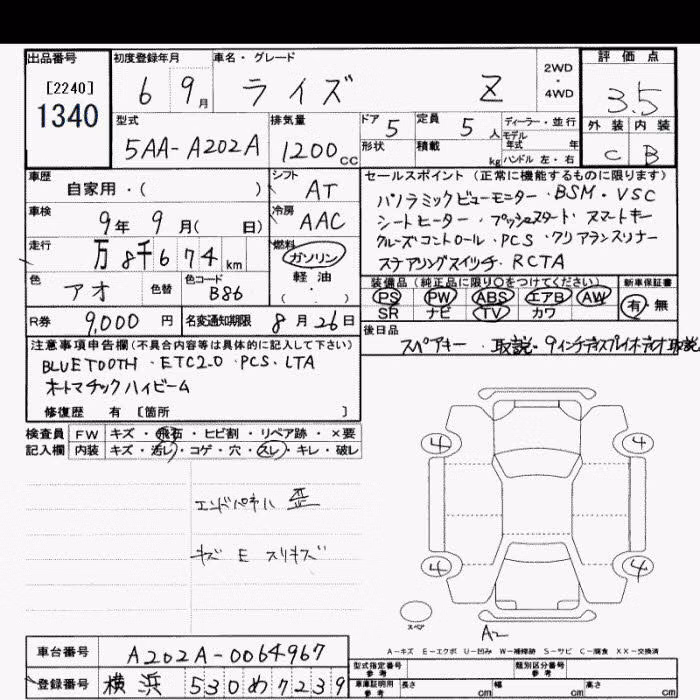 出品番号
[2240]
1340
初度登録年月
6 9月
車名・グレード
ライズ Z
2WD
・
4WD
評価点
3.5
外装 内装
C B
型式
5AA-A202A
排気量
1200cc
ドア 5
定員 5人
形状
積載 kg
ディーラー・並行
モデル年式 年
ハンドル 左・右
車歴
自家用・( )
シフト
AT
車検
9年 9月( 日)
冷房
AAC
走行
万8千674km
燃料
ガソリン
軽油
( ・ )
色
アオ
色替
色コード
B86
R券 9,000円
名変通知期限 8月26日
セールスポイント(正常に機能するものに限ります)
パノラミックビューモニター・BSM・VSC
シートヒーター・プッシュスタート スマートキー
クルーズコントロール・PCS・クリアランスソナー
ステアリングスイッチ・RCTA
装備品(純正品に限り○をつけてください)
PS PW ABS エアB AW
SR ナビ TV カワ
新車保証書
有・無
後日品
スペアキー・取説・9インチディスプレイオーディオ取説
注意事項申告欄(不具合内容等は具体的に記入して下さい)
BLUETOOTH・ETC2.0・PCS・LTA
オートマチックハイビーム
修復歴 有 [箇所 ]
検査員
記入欄
FW キズ・飛石・ヒビ割・リペア跡・×要
内装 キズ・汚レ・コゲ・穴・スレ・キレ・破レ
エンドパネル 歪
キズ E スリキズ
4 4
4 4
スペア
A2
A-キズ E-エクボ U-凹み W-補修跡 S-サビ C-腐食 XX-交換済
車台番号
A202A-0064967
登録番号
横浜530め7239
型式指定番号
参考
類別区分番号
参考
車庫証明用
参考
長さ cm
幅 cm
高さ cm